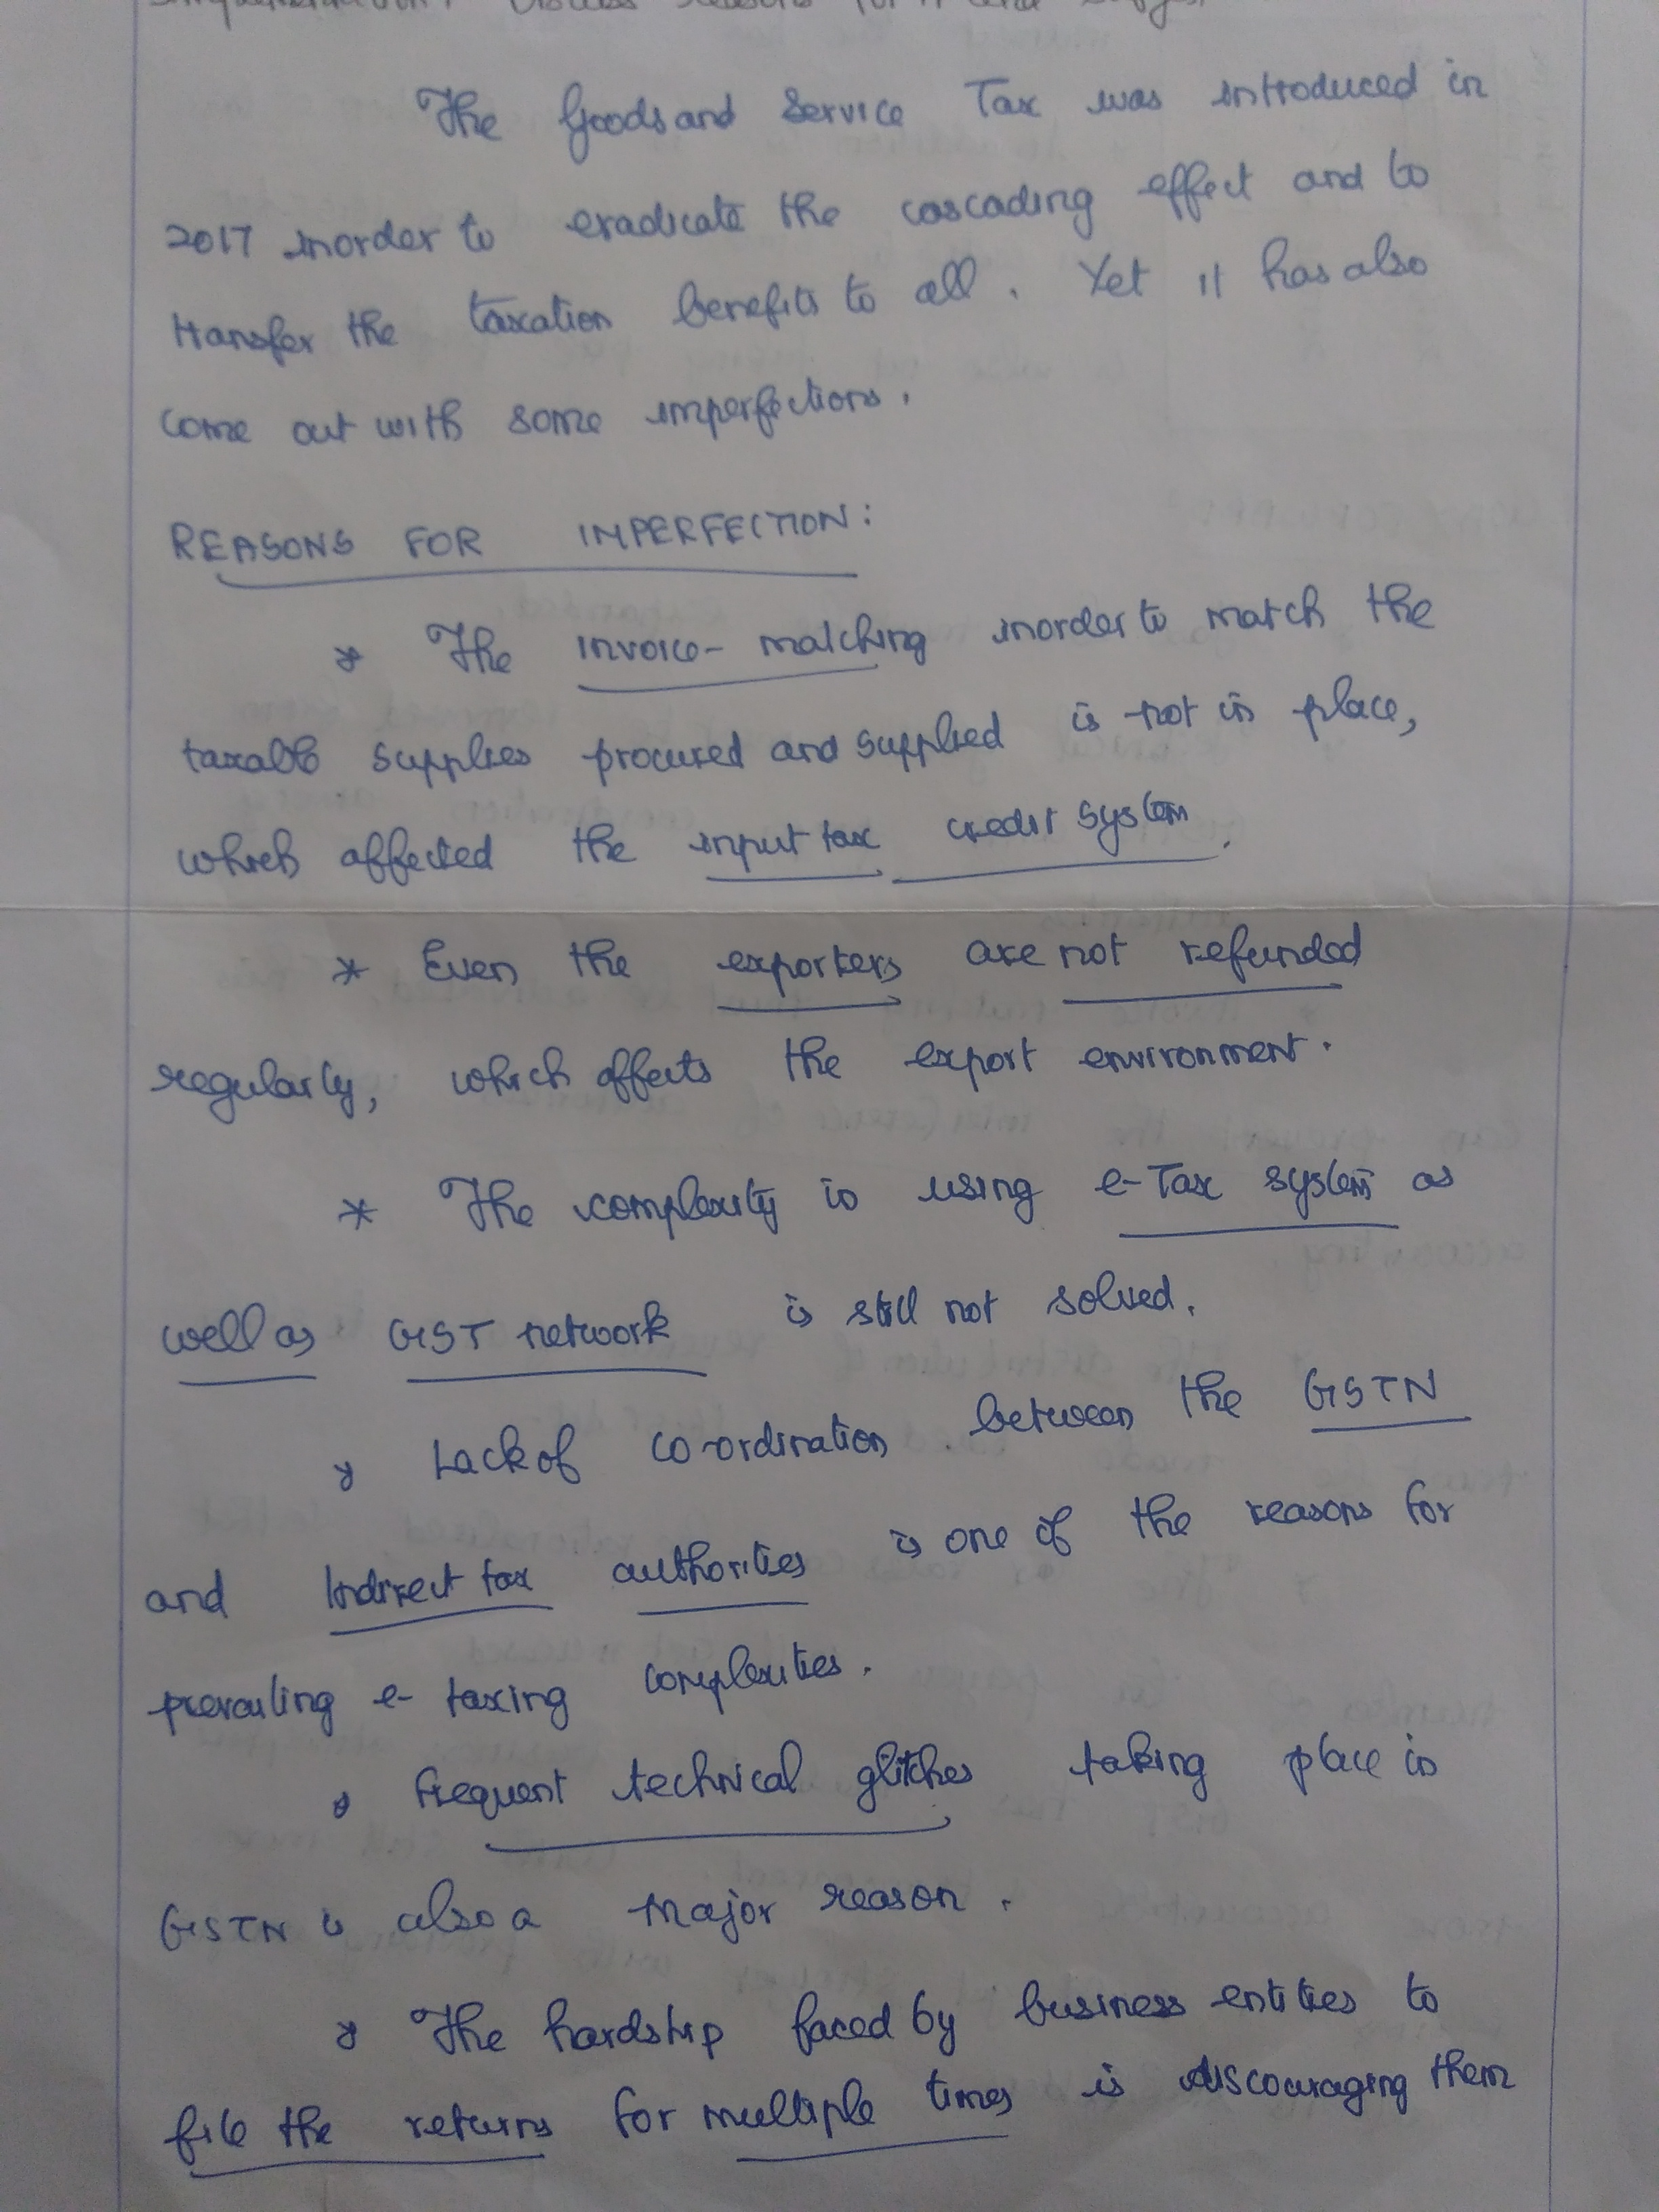 Discuss reasons for it and
The Goods and Service Tax was introduced in
2017 inorder to eradicate the cascading effect and to
transfer the taxation benefits to all. Yet it has also
come out with some imperfections.
REASONS FOR IMPERFECTION:
* The invoice-matching inorder to match the
taxable supplies procured and supplied is not in place,
which affected the input tax credit system.
* Even the exporters are not refunded
regularly, which affects the export environment.
* The complexity in using e-Tax system as
well as GST network is still not solved.
* Lack of co-ordination between the GSTN
and Indirect tax authorities is one of the reasons for
prevailing e-taxing complexities.
* Frequent technical glitches taking place in
GSTN is also a major reason.
* The hardship faced by business entities to
file the returns for multiple times is discouraging them